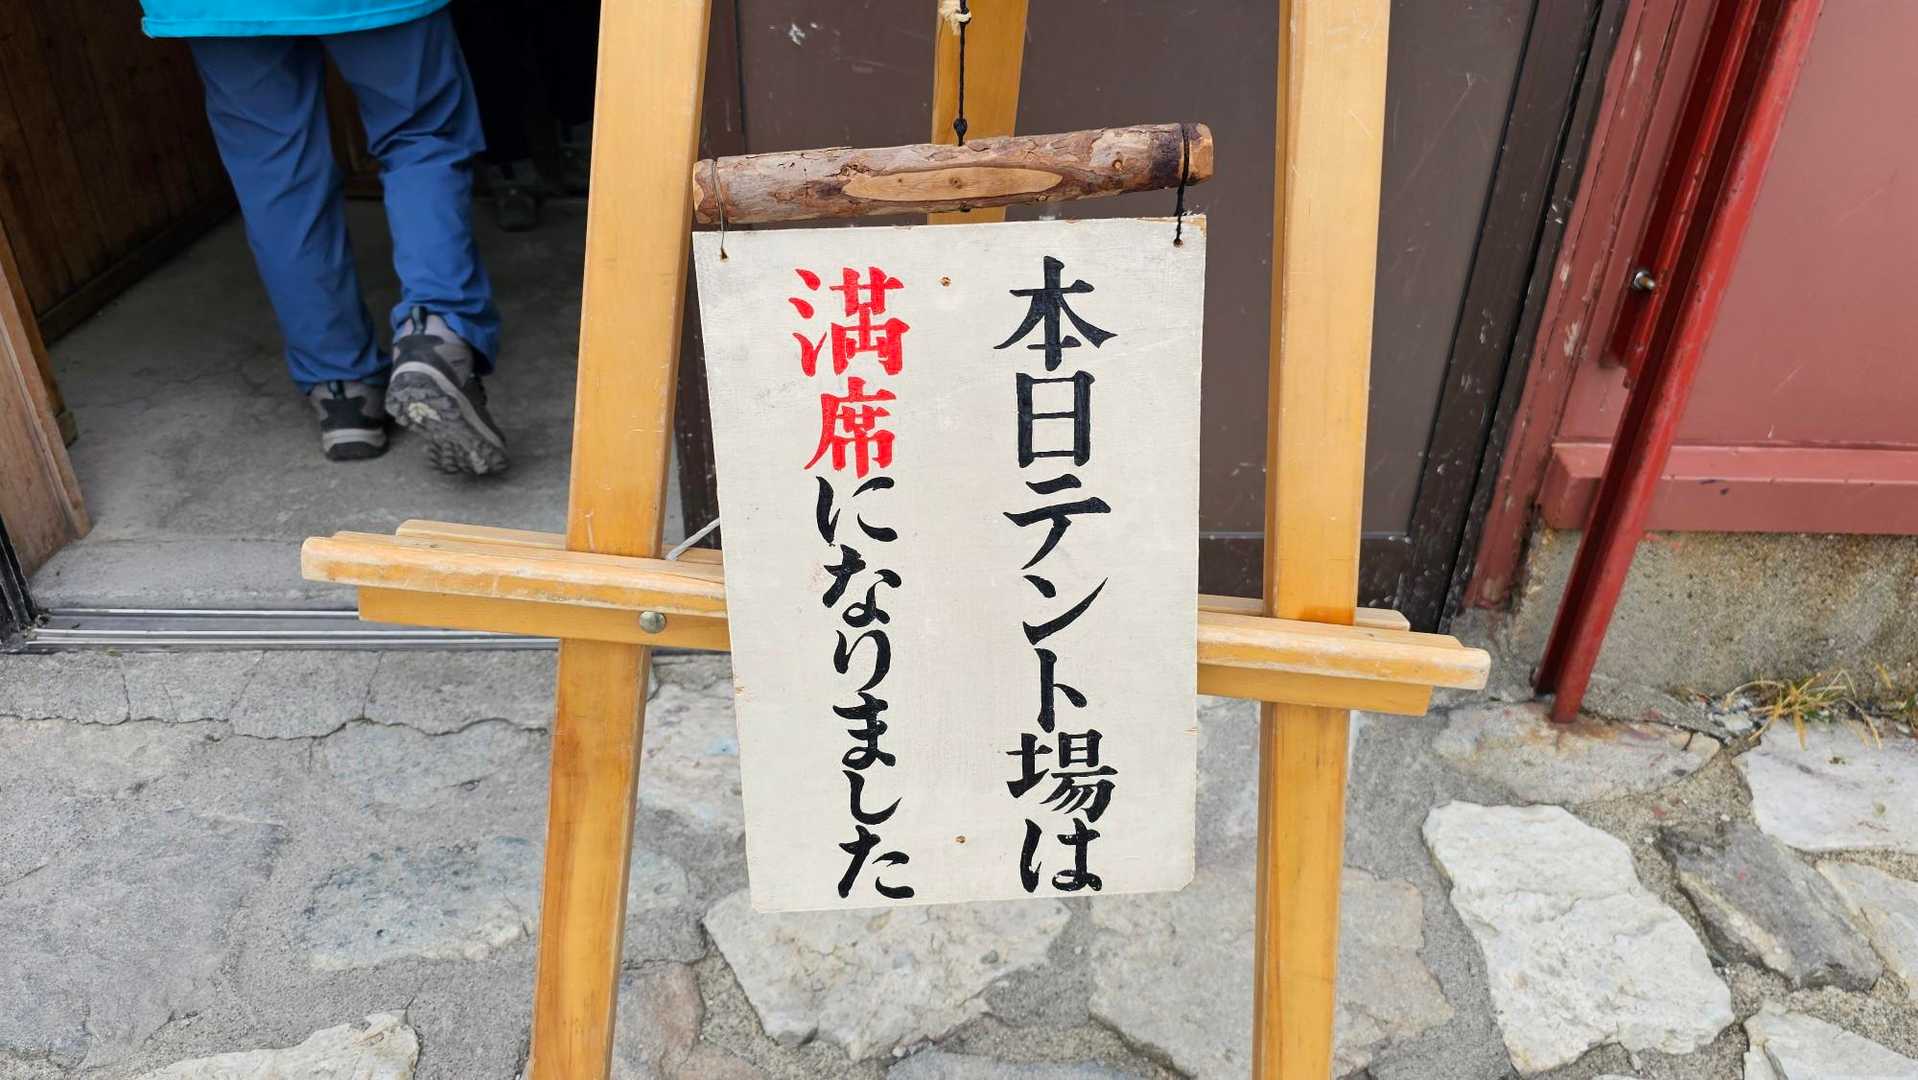 本日テント場は
満席になりました